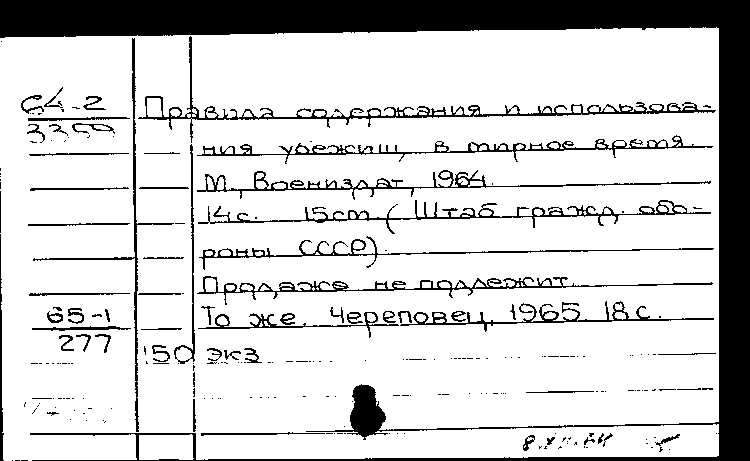 64-2 Правила содержания и использова-
3359
ния убежищ, в мирное время.
М., Воениздат, 1964.
14с. 15cm (Штаб гражд. обо-
роны СССР)
Продаже не подлежит.
65-1 То же. Череповец, 1965 18 с.
277
150 экз
8.XII.64